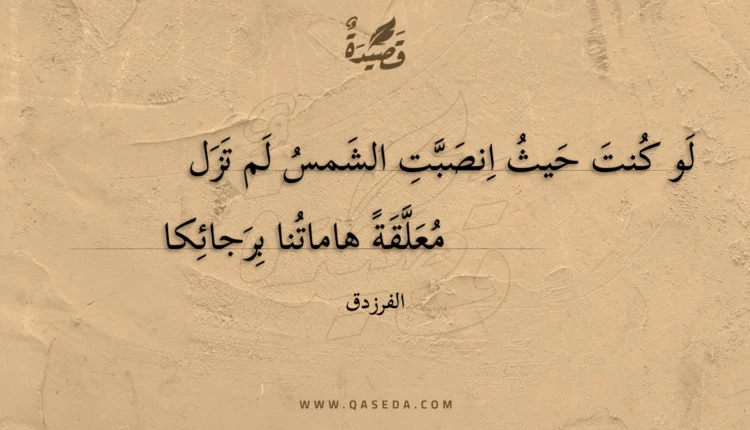 قَصِيْدَةٌ
لَو كُنتَ حَيثُ اِنصَبَّتِ الشَمسُ لَم تَزَل
مُعَلَّقَةً هاماتُنا بِرَجائِكا
الفرزدق
WWW.QASEDA.COM